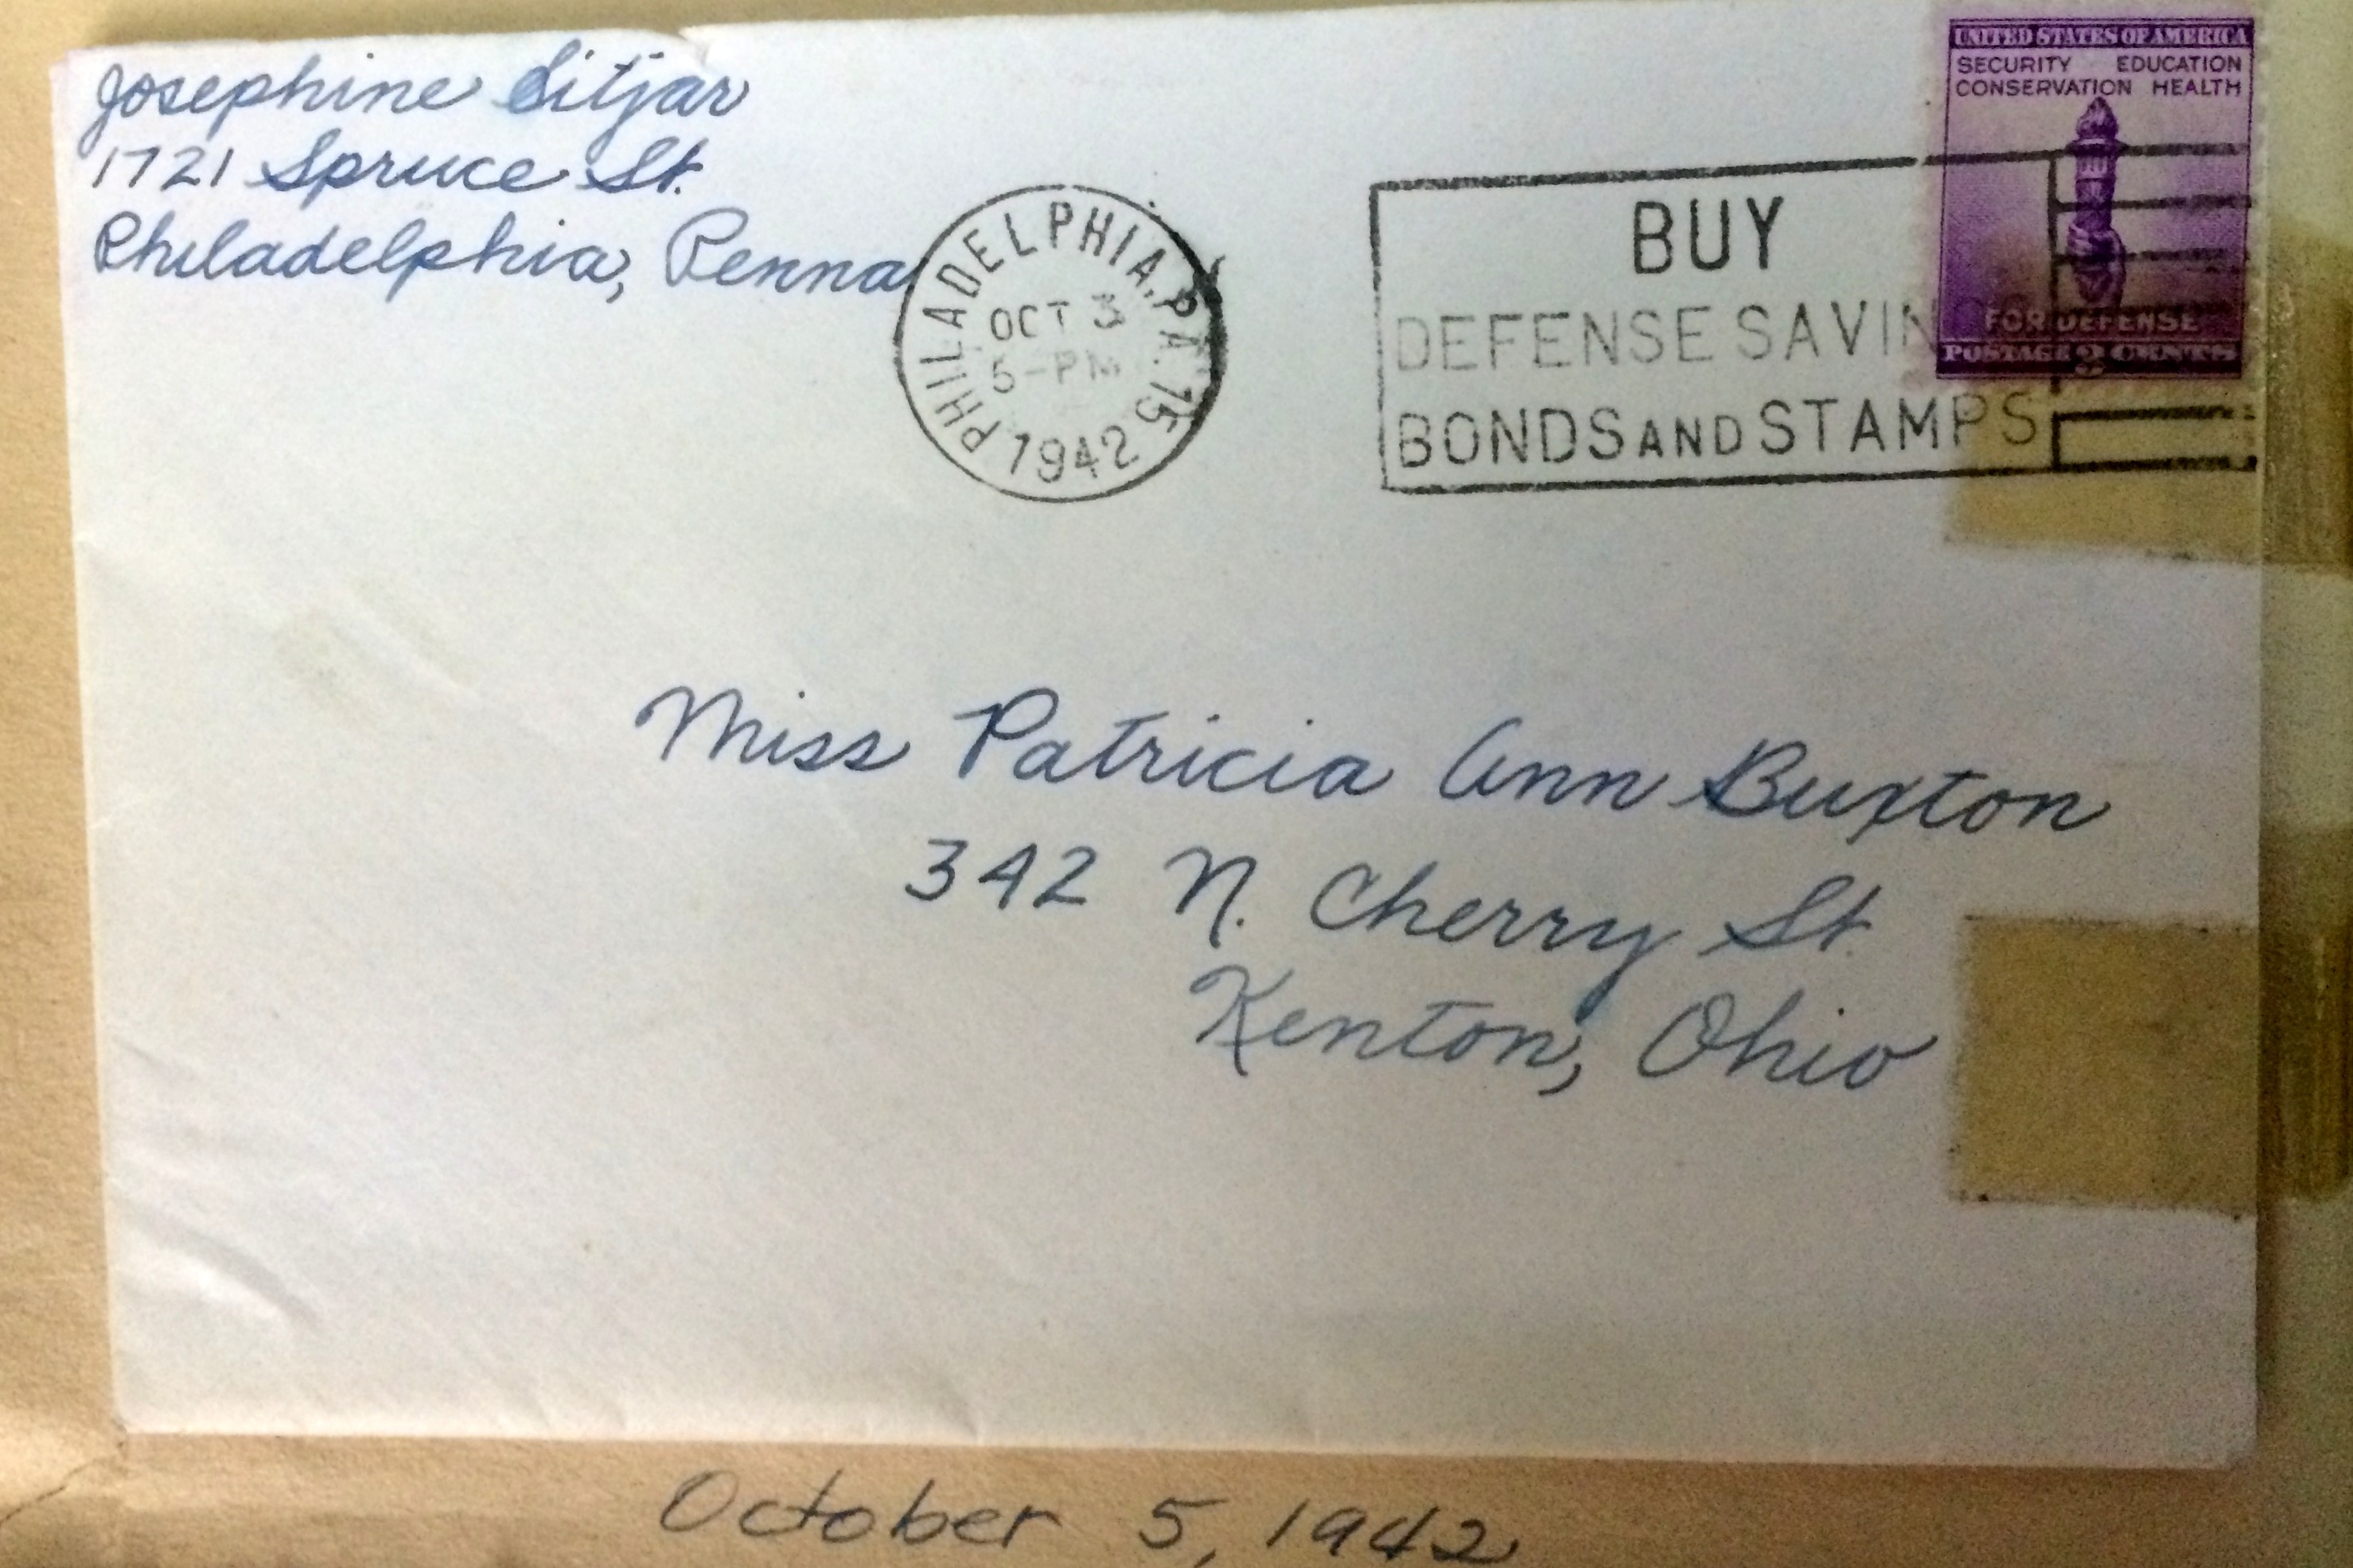 Josephine Sitjar
1721 Spruce St.
Philadelphia, Penna
PHILADELPHIA, PA. 15
OCT 3
5-PM
1942
BUY
DEFENSE SAVINGS
BONDS AND STAMPS
UNITED STATES OF AMERICA
SECURITY EDUCATION
CONSERVATION HEALTH
FOR DEFENSE
POSTAGE 3 CENTS
Miss Patricia Ann Buxton
342 N. Cherry St.
Kenton, Ohio
October 5, 1942